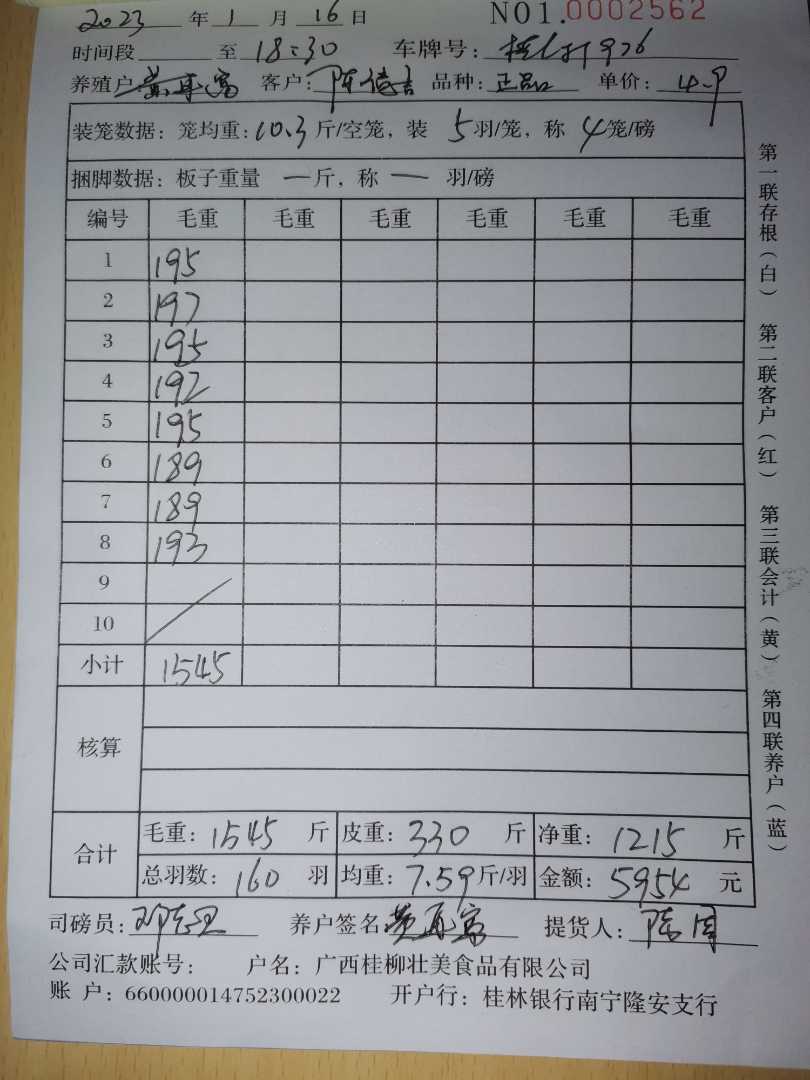 2023 年 1 月 16 日 NO1.0002562
时间段 至 18:30 车牌号: 926
养殖户 黄再富 客户: 陈德吉 品种: 正品 单价: 4.9
装笼数据: 笼均重: 10.3 斤/空笼, 装 5 羽/笼, 称 4 笼/磅
捆脚数据: 板子重量 — 斤, 称 — 羽/磅
编号 毛重 毛重 毛重 毛重 毛重 毛重
1 195
2 197
3 195
4 192
5 195
6 189
7 189
8 193
9
10
小计 1545
核算
合计 毛重: 1545 斤 皮重: 330 斤 净重: 1215 斤
总羽数: 160 羽 均重: 7.59 斤/羽 金额: 5954 元
司磅员: 养户签名 黄再富 提货人:
公司汇款账号: 户名: 广西桂柳壮美食品有限公司
账 户: 660000014752300022 开户行: 桂林银行南宁隆安支行
第一联存根(白) 第二联客户(红) 第三联会计(黄) 第四联养户(蓝)